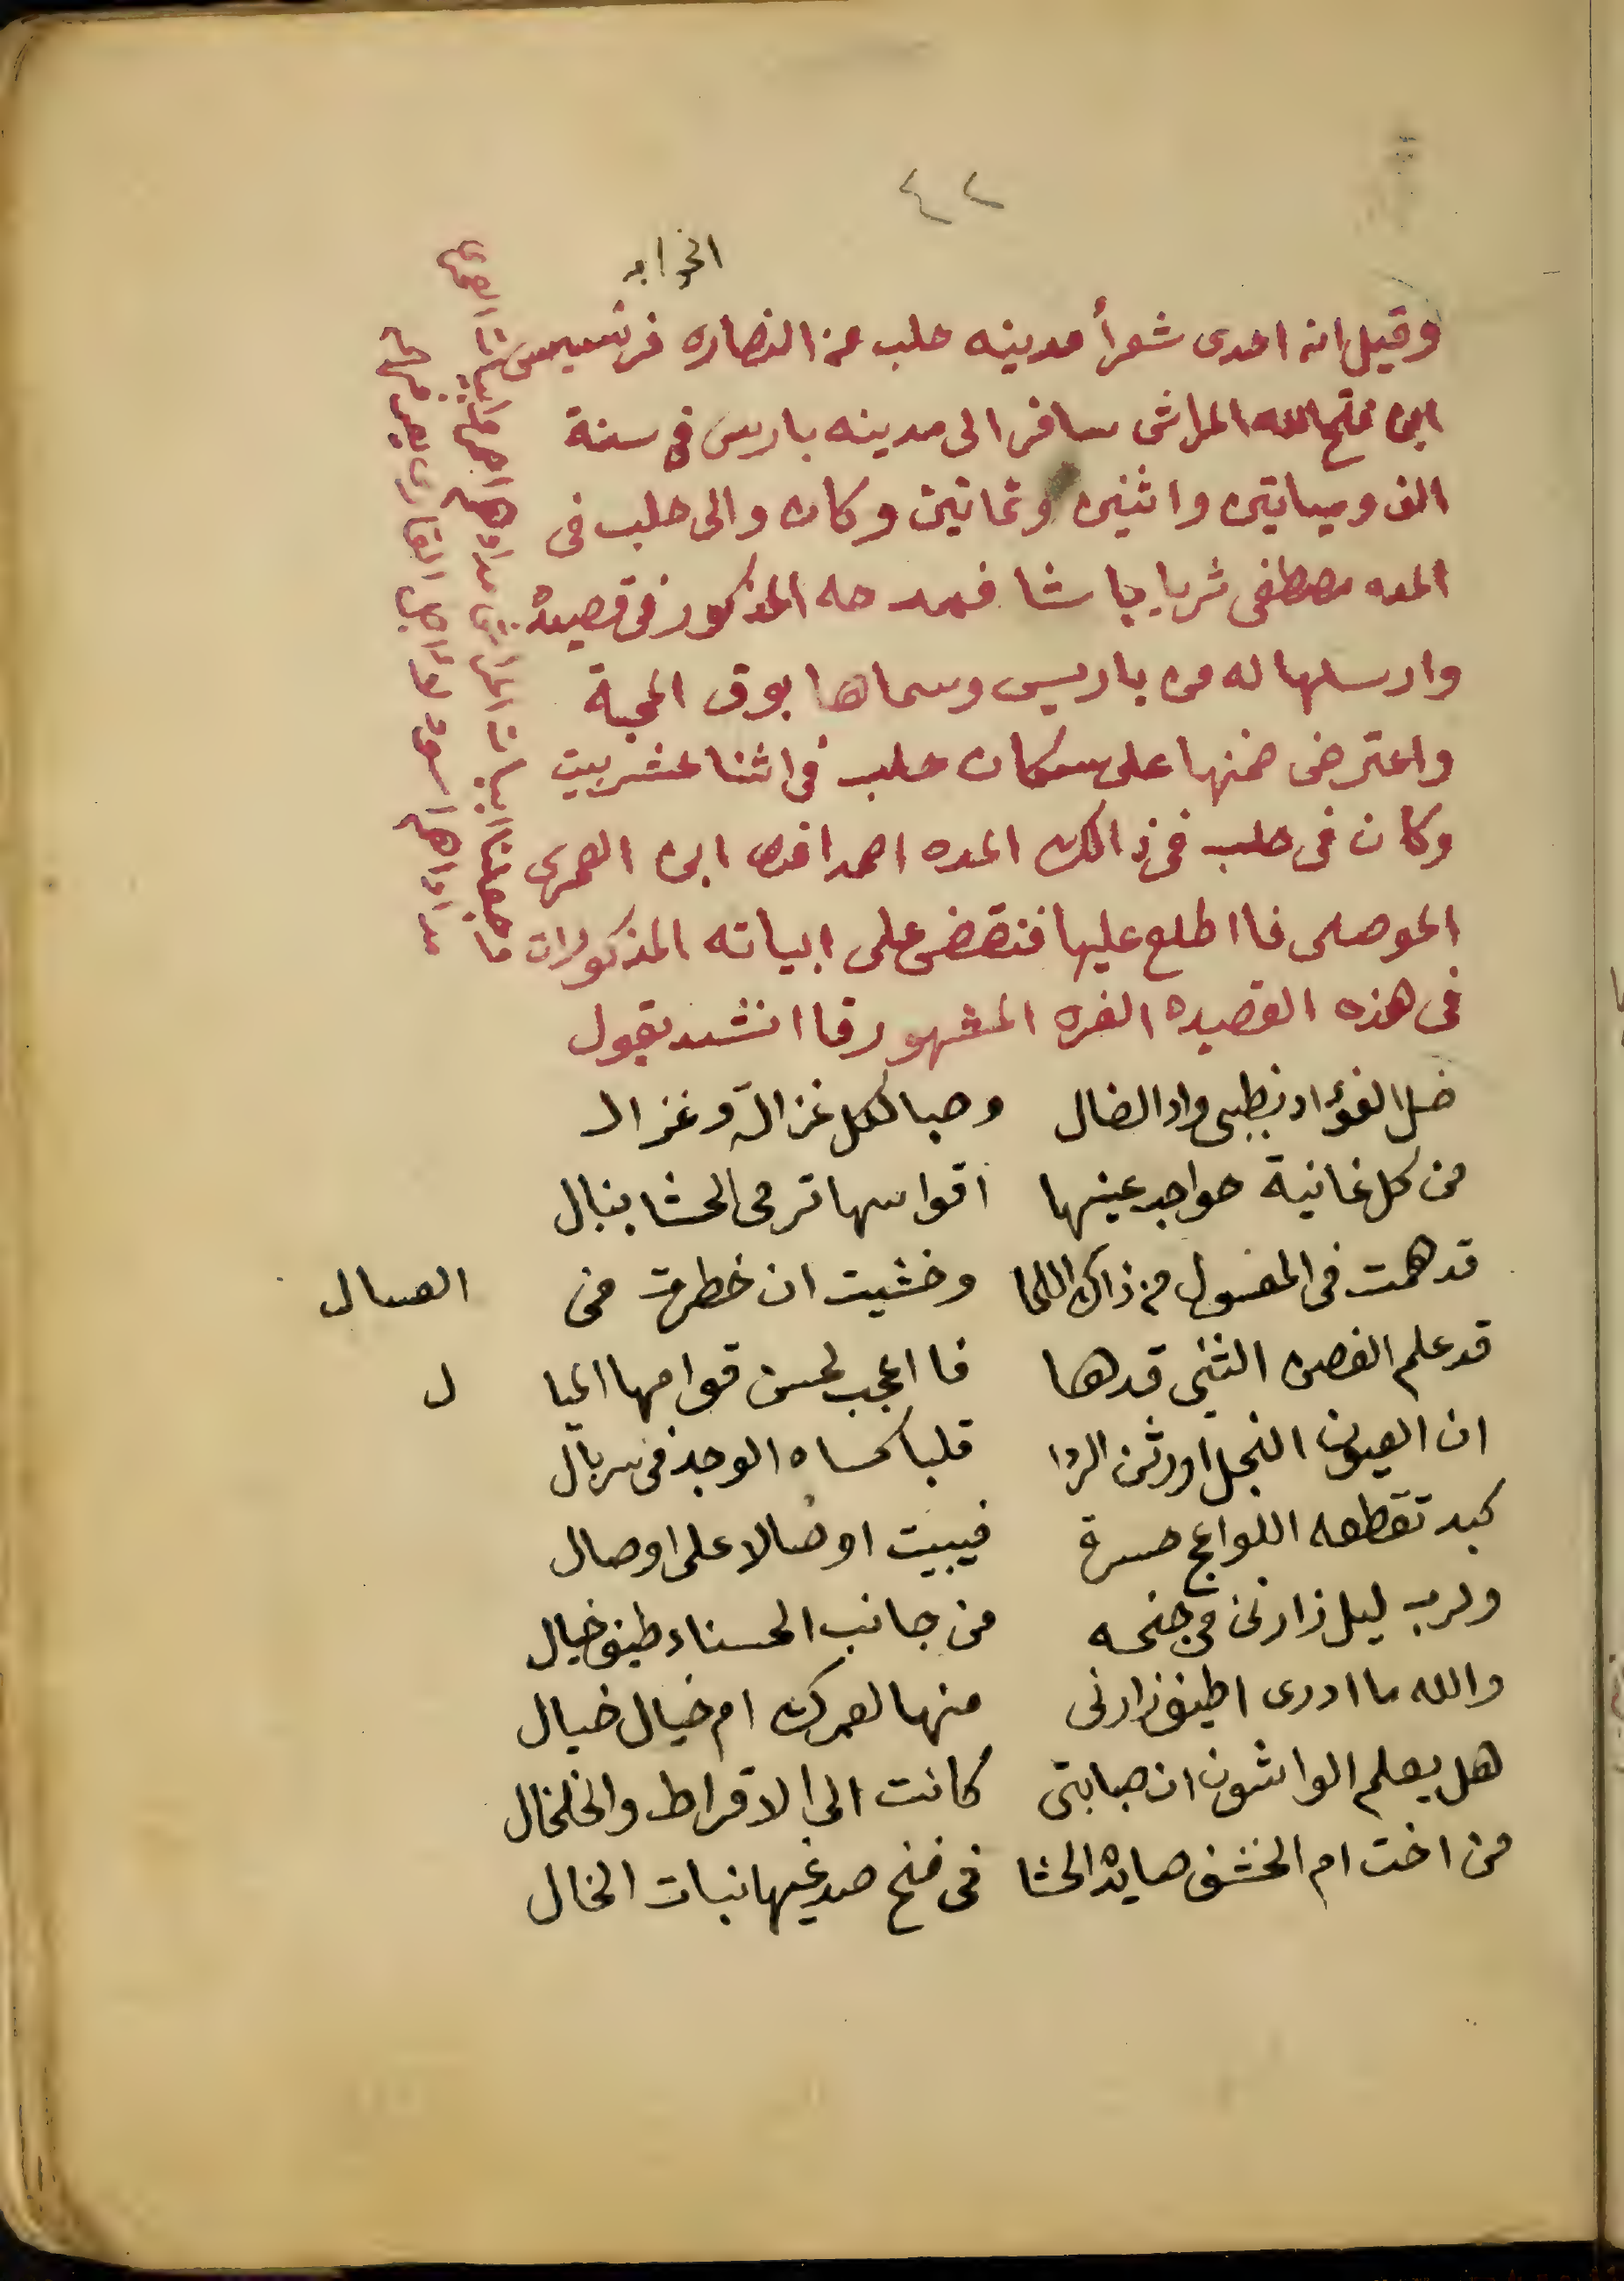 ٤٢
وقيل انه احدى شعرأ مدينه حلب من النصاره فرنسيس
ابن فتح الله المراش سافر الى مدينه باريس في سنة
الف وميايتين واثنين وثمانين وكان والى حلب فى
المده مصطفى ثريا باشا فمدحه المذكور فى قصيدة
وارسلها له من باريس وسماها بوق المحبة
واعترض ضمنها على سكان حلب فى اثنا عشر بيت
وكان فى حلب فى ذالك المده احمد افندى ابن العمرى
الموصلى فا اطلع عليها فنقض على ابياته المذكورات
فى هذه القصيده الغره المشهوره فا انشد يقول
ضل الفؤاد بظبى واد الضال وصبا لكل غزالة وغزال
من كل غانية حواجب عينها اقواسها ترمى الحشا بنبال
قد همت فى المعسول من ذاك اللما وخشيت ان خطرت من العسال
قد علم الغصن التثنى قدها فا اعجب لحسن قوامها الميال
ان العيون النجل اورثن الردا قلبا كساه الوجد فى سربال
كبد تقطعه اللواعج حسرة فيبيت اوصالا على اوصال
ولرب ليل زارنى فى جنحه من جانب الحسناء طيف خيال
والله ما ادرى اطيف زارنى منها لعمرك ام خيال خيال
هل يعلم الواشون ان صبابتى كانت الى الاقراط والخلخال
من اخت ام الخشف صايدة الحشا فى فخ صدغيها نبات الخال